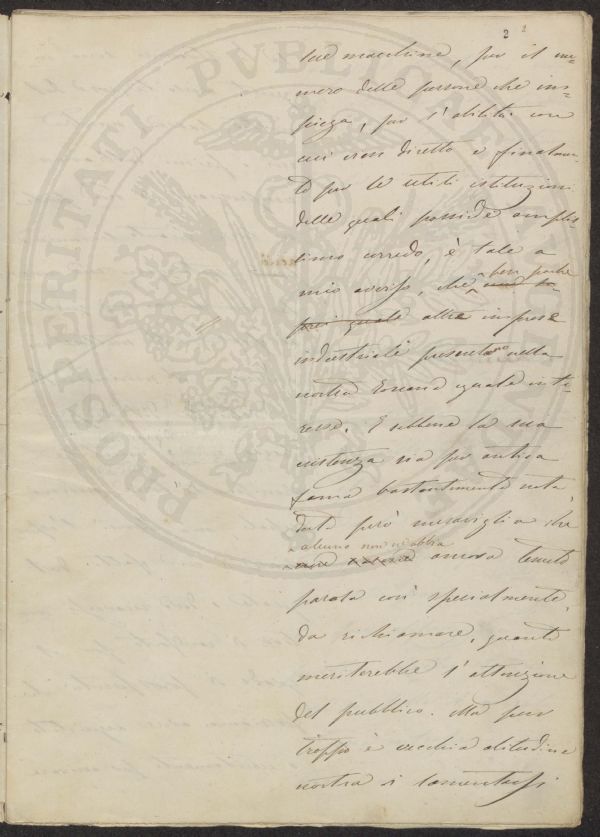 2 2
sue macchine, per il nu-
mero delle persone che im-
piega, per l'abilità con
cui vien diretto e finalmen-
te per le utili istituzioni
delle quali possiede amplis-
simo corredo, è tale a
mio avviso, che ben poche
altre imprese
industriali presentano nella
nostra Toscana eguale inte-
resse. E sebbene la sua
esistenza sia per antica
fama bastantemente nota
però meraviglia che
alcuno non ne abbia
ancora tenuto
parola così specialmente,
da richiamare, quanto
meriterebbe l'attenzione
del pubblico. Ma pur
troppo è vecchia abitudine
nostra il lamentarsi
PROSPERITATI PUBLICAE AUGENDAE